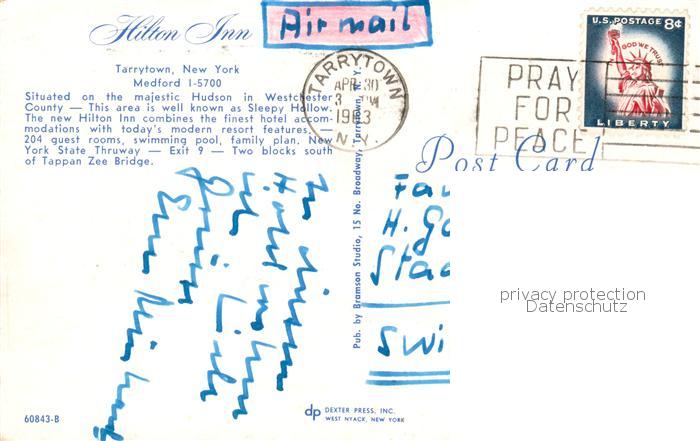 Hilton Inn
Air mail
Tarrytown, New York
Medford 1-5700
Situated on the majestic Hudson in Westchester
County — This area is well known as Sleepy Hollow.
The new Hilton Inn combines the finest hotel accom-
modations with today's modern resort features. —
204 guest rooms, swimming pool, family plan. New
York State Thruway — Exit 9 — Two blocks south
of Tappan Zee Bridge.
TARRYTOWN
APR 30
1963
N.Y.
PRAY
FOR
PEACE
U.S. POSTAGE 8¢
IN GOD WE TRUST
LIBERTY
Post Card
Pub. by Bramson Studio, 15 No. Broadway, Tarrytown, N. Y.
In diesem
Hotel wohnen
wir
Liebe
Fa
H. G
Sta
Swi
privacy protection
Datenschutz
60843-B
dp DEXTER PRESS, INC.
WEST NYACK, NEW YORK